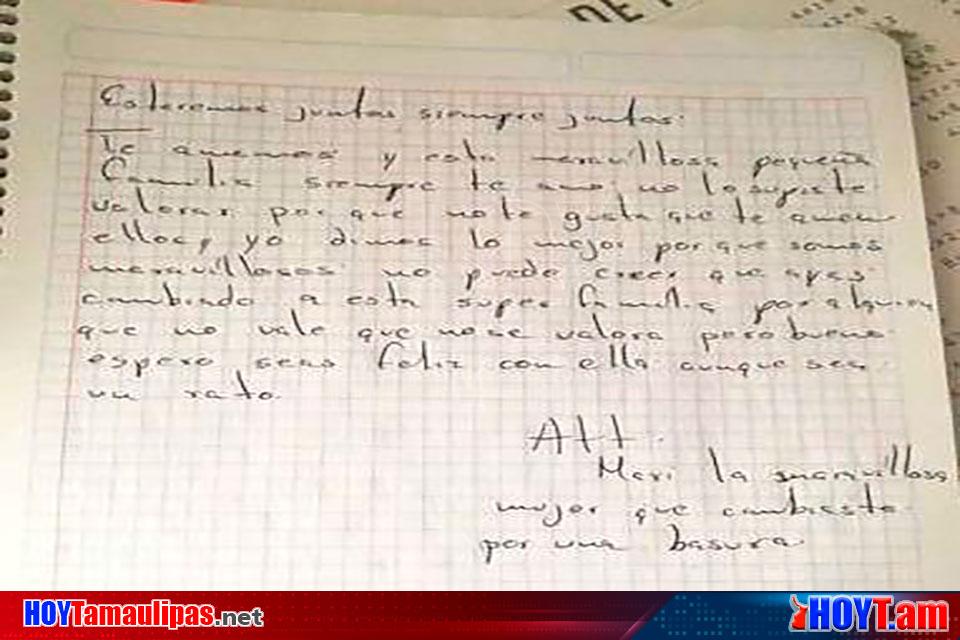 Estaremos juntas siempre juntas.
Te amamos y esta maravillosa pequeña
Familia siempre te amo, no lo supiste
valorar por que no te gusta que te amen
ellos y yo dimos lo mejor porque somos
maravillosos no puedo creer que ayas
cambiado a esta super familia por alguien
que no vale que no se valora pero bueno
espero seas feliz con ella aunque sea
un rato.
Att.
Mari la maravillosa
mujer que cambiaste
por una basura
HOYTamaulipas.net
HOYT.am